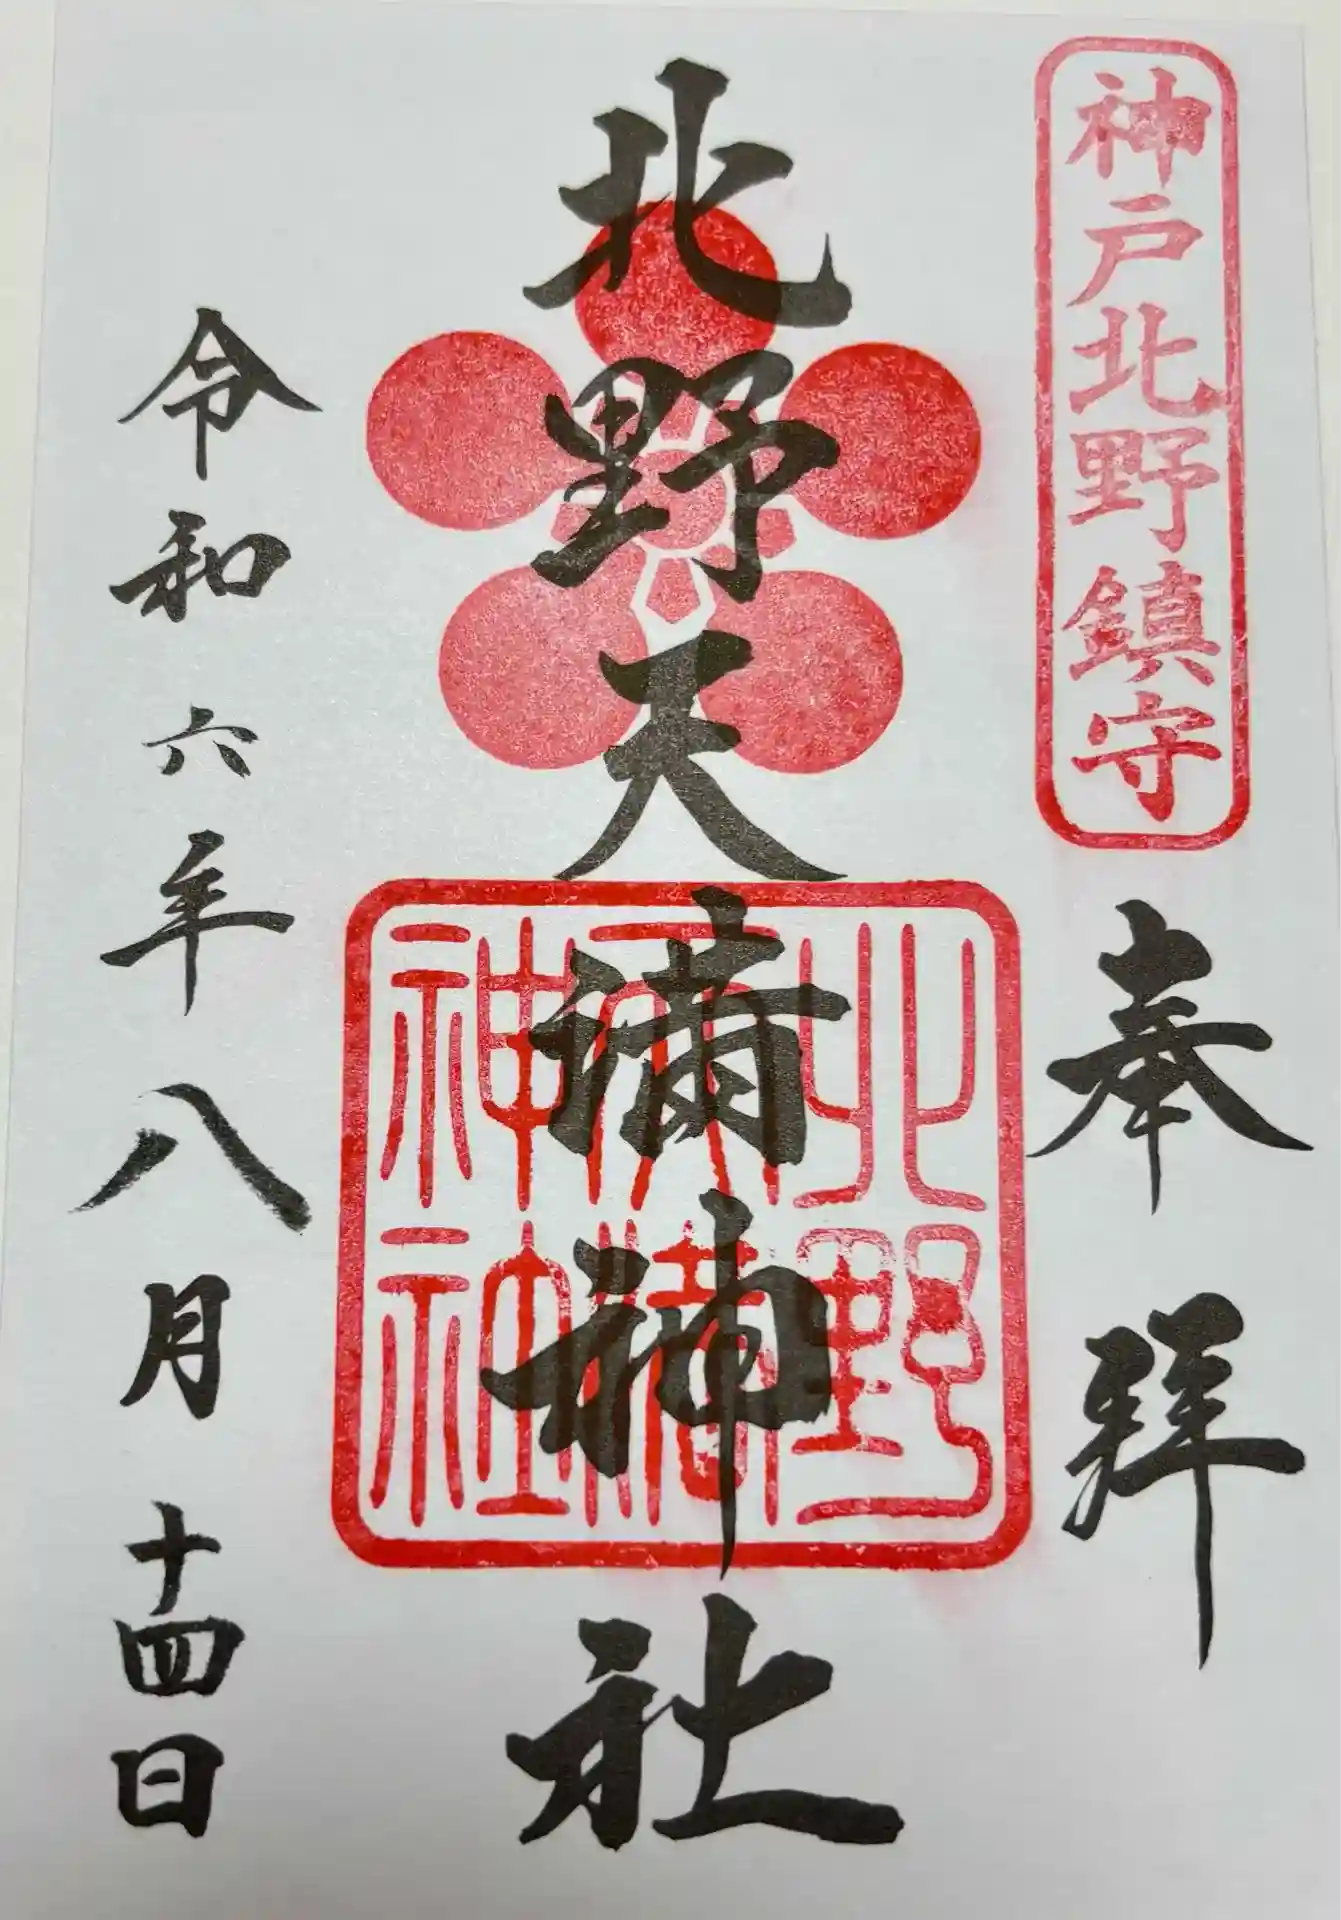 神戸北野鎮守
奉拜
北野天満神社
北野
天満
神社
令和六年八月十四日